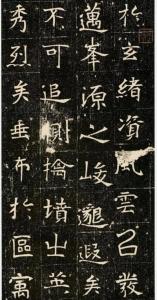 於玄緒資風雲召發
邁峯源之峻邈遐矣
不可追測擒墳出英
秀烈矣垂布於區寓